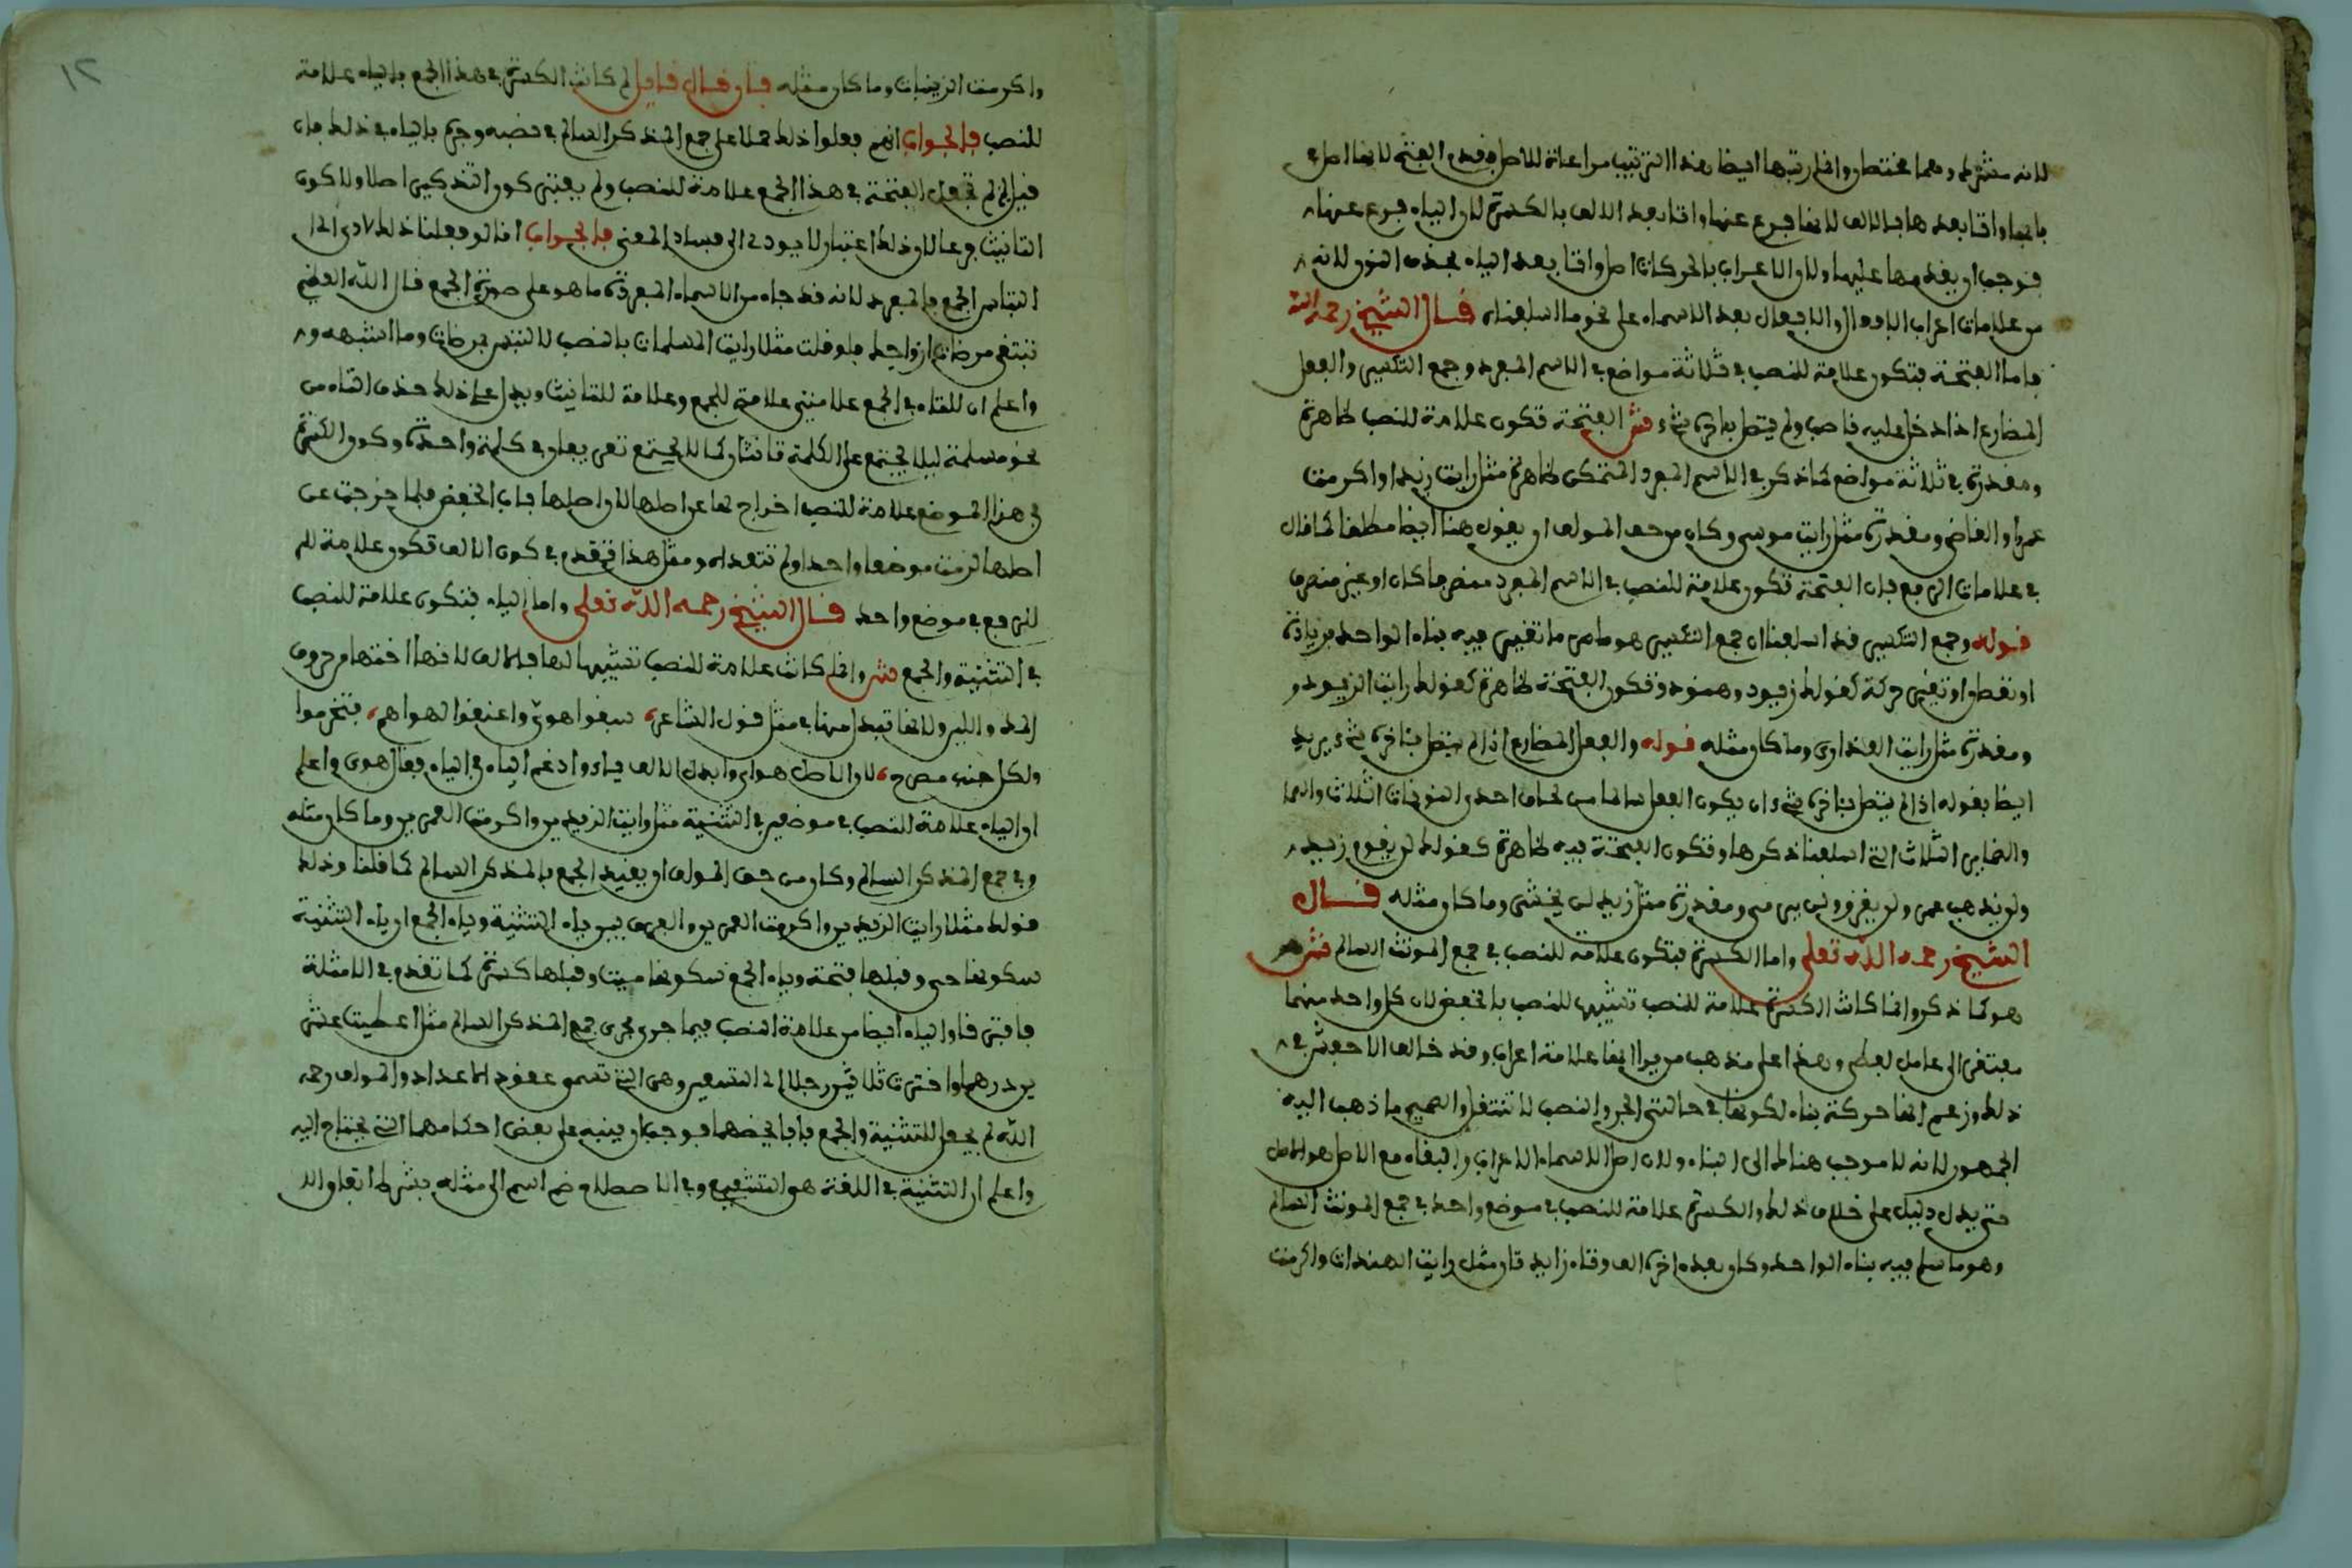 لانه مشترط وهما مختصان وانما رتبها ايضا هذا الترتيب مراعاة للاصل فقدم الفتحة لانها اصل في
بابها واتا بعدها بالالف لانها فرع عنها واتا بعد الالف بالكسرة لان الياء فرع عنها
فوجب ان يقدمها عليها ولان الاعراب بالحركات اصل واتا بعد الياء بحذف النون لانه
من علامات اعراب الافعال والافعال بعد الاسماء على نحو ما اسلفناه قال الشيخ رحمه الله
فاما الفتحة فتكون علامة للنصب في ثلاثة مواضع في الاسم المفرد وجمع التكسير والفعل
المضارع اذا دخل عليه ناصب ولم يتصل باخره شيء ش الفتحة تكون علامة للنصب ظاهرة
ومقدرة في ثلاثة مواضع كما ذكر في الاسم المفرد المتمكن ظاهرة مثل رايت زيدا واكرمت
عمرا والقاضي ومقدرة مثل رايت موسى وكان من حق المولف ان يقول هنا ايضا مطلقا كما قال
في علامات الرفع فان الفتحة تكون علامة للنصب في الاسم المفرد منصرفا كان او غير منصرف
قوله وجمع التكسير قد اسلفنا ان جمع التكسير هو ما تغير فيه بناء الواحد بزيادة
او نقص او تغير حركة كقولك زيود وهنود وتكون الفتحة ظاهرة كقولك رايت الزيود و
ومقدرة مثل رايت العذارى وما كان مثله قوله والفعل المضارع اذا لم يتصل باخره شيء يريد
ايضا بقوله اذا لم يتصل باخره شيء ان يكون الفعل سالما من لحاق احدى النونات الثلاث
والضماير الثلاث التي اسلفنا ذكرها وتكون الفتحة فيه ظاهرة كقولك لن يقوم زيد
ولن يذهب عمر ولن يغزو ولن يرمي ومقدرة مثل زيد لن يخشى وما كان مثله قال
الشيخ رحمه الله تعلى واما الكسرة فتكون علامة للنصب في جمع المونث السالم ش
هو كما ذكر وانما كانت الكسرة علامة للنصب تشبيها للنصب بالخفض لان كل واحد منهما
مفتقر الى عامل لفظي وهذا على مذهب من يرا انها علامة اعراب وقد خالف الاخفش في
ذلك وزعم انها حركة بناء لكونها في حالتي الجر والنصب لا تنتقل والصحيح ما ذهب اليه
الجمهور لانه لا موجب هناك الى البناء ولان اصل الاسماء الاعراب والبقاء مع الاصل هو الاصل
حتى يدل دليل على خلاف ذلك والكسرة علامة للنصب في موضع واحد في جمع المونث السالم
وهو ما سلم فيه بناء الواحد وكان بعده اخره الف وتاء زايدتان مثل رايت الهندات واكرمت
واكرمت الزينبات وما كان مثله فان قال قايل لم كانت الكسرة في هذا الجمع بالياء علامة
للنصب فالجواب انهم فعلوا ذلك حملا على جمع المذكر السالم في نصبه وجره بالياء في ذلك فان
قيل لم لم تجعل الفتحة في هذا الجمع علامة للنصب ولم يعتبر كون التذكير اصلا ولا كون
التانيث فرعا لان ذلك اعتبار لا يودي الى فساد المعنى فالجواب انا لو فعلنا ذلك لادى الى
التباس الجمع بالمفرد لانه قد جاء من الاسماء المفردة ما هو على صورة الجمع قال الله العظيم
تبتغي مرضات ازواجك فلو قلت مثلا رايت المسلمات بالنصب لالتبس بمرضات وما اشبهه و
واعلم ان للتاء في الجمع علامتين علامة للجمع وعلامة للتانيث ويدل على ذلك حذف التاء من
نحو مسلمة ليلا يجتمع على الكلمة تانثان كما لا يجتمع تعريفان في كلمة واحدة وكون الكسرة
في هذا الموضع علامة للنصب اخراج لها عن اصلها لان اصلها باب الخفض فلما خرجت عن
اصلها لزمت موضعا واحدا ولم تتعداه ومثل هذا تقدم في كون الالف تكون علامة لل
لرفع في موضع واحد قال الشيخ رحمه الله تعلى واما الياء فتكون علامة للنصب
في التثنية والجمع ش وانما كانت علامة للنصب تشبيها لها بالالف لانها اختها من حروف
المد واللين ولانها تبدل منها في مثل قول الشاعر سبقوا هوي واعنقوا لهواهم فتخرموا
ولكل جنب مصرع لان الاصل هواي وابدل الالف ياء وادغم الياء في الياء فقال هوي واعلم
ان الياء علامة للنصب في موضعين في التثنية مثل رايت الزيدين واكرمت العمرين وما كان مثله
وفي جمع المذكر السالم وكان من حق المولف ان يقيد الجمع بالمذكر السالم كما قلنا وذلك
قولك مثلا رايت الزيدين واكرمت العمرين والفرق بين ياء التثنية وياء الجمع ان ياء التثنية
سكونها حي وقبلها فتحة وياء الجمع سكونها ميت وقبلها كسرة كما تقدم في الامثلة
فافترقا والياء ايضا من علامة النصب فيما جرى مجرى جمع المذكر السالم مثل اعطيت عشر
ين درهما واشتريت ثلاثين رجلا الى التسعين وهي التي تسمى عقود الاعداد والمولف رحمه
الله لم يجعل للتثنية والجمع بابا يخصهما فوجب ان ينبه على بعض احكامهما التي يحتاج اليه
واعلم ان التثنية في اللغة هو التشفيع وفي الاصطلاح ضم اسم الى مثله بشرط اتفاق الا